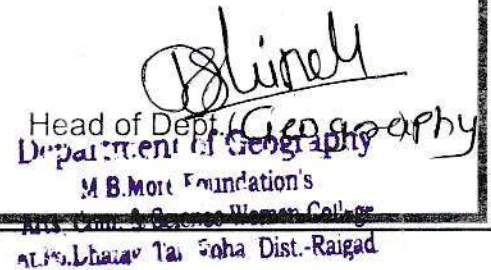 Head of Dept. (Geography
Department of Geography
M.B.More Foundation's
Arts, Com. & Science Women College
Dhatav Tal Roha Dist.-Raigad